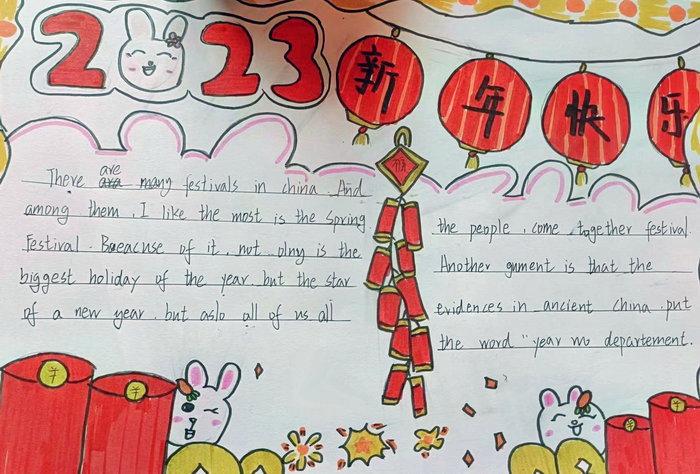 2023
新年快乐
There are many festivals in china. And
among them, I like the most is the Spring
Festival. Baeacuse of it, not olny is the
biggest holiday of the year. but the star
of a new year, but aslo all of us all
the people, come together festival.
Another gument is that the
evidences in ancient China put
the word "year mo departement.